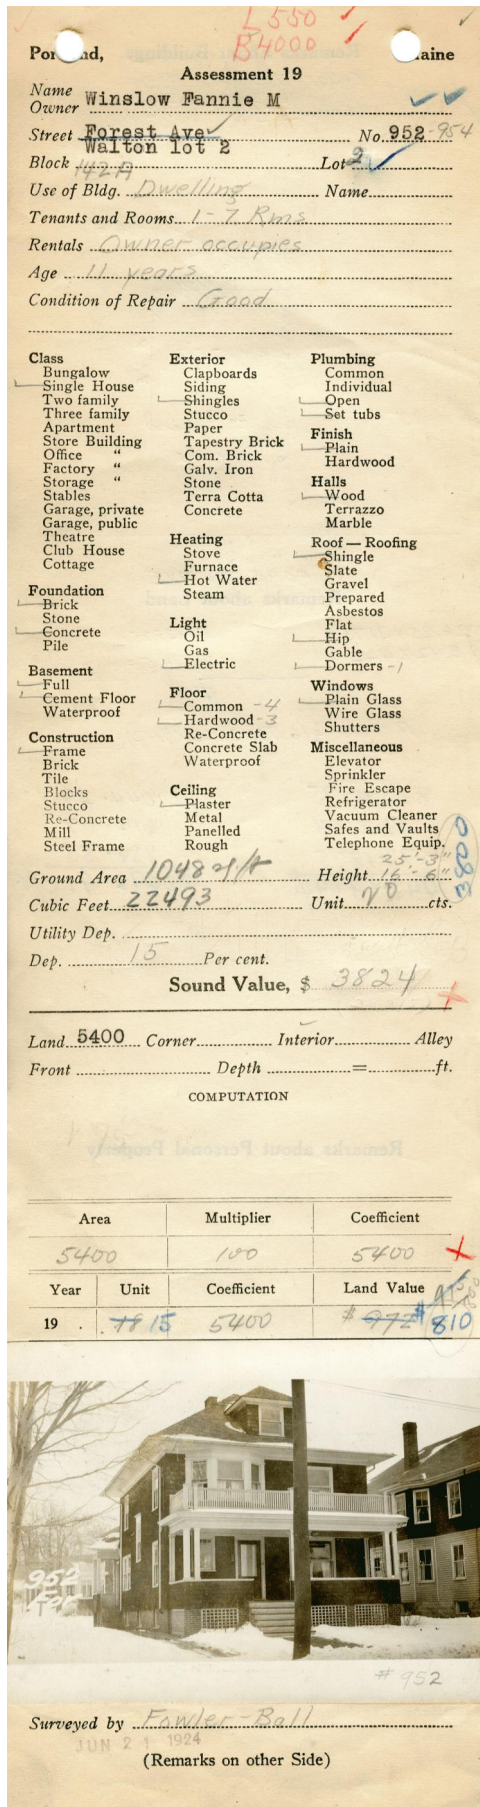 L 550
B 4000
Portland, Maine
Assessment 19
Name
Owner Winslow Fannie M
Street Forest Ave No. 952-954
Walton lot 2
Block 142A Lot 2
Use of Bldg. Dwelling Name
Tenants and Rooms 1-7 Rms
Rentals Owner occupies
Age 11 years
Condition of Repair Good
Class
Bungalow
Single House
Two family
Three family
Apartment
Store Building
Office "
Factory "
Storage "
Stables
Garage, private
Garage, public
Theatre
Club House
Cottage
Foundation
Brick
Stone
Concrete
Pile
Basement
Full
Cement Floor
Waterproof
Construction
Frame
Brick
Tile
Blocks
Stucco
Re-Concrete
Mill
Steel Frame
Exterior
Clapboards
Siding
Shingles
Stucco
Paper
Tapestry Brick
Com. Brick
Galv. Iron
Stone
Terra Cotta
Concrete
Heating
Stove
Furnace
Hot Water
Steam
Light
Oil
Gas
Electric
Floor
Common - 4
Hardwood - 3
Re-Concrete
Concrete Slab
Waterproof
Ceiling
Plaster
Metal
Panelled
Rough
Plumbing
Common
Individual
Open
Set tubs
Finish
Plain
Hardwood
Halls
Wood
Terrazzo
Marble
Roof — Roofing
Shingle
Slate
Gravel
Prepared
Asbestos
Flat
Hip
Gable
Dormers - 1
Windows
Plain Glass
Wire Glass
Shutters
Miscellaneous
Elevator
Sprinkler
Fire Escape
Refrigerator
Vacuum Cleaner
Safes and Vaults
Telephone Equip.
3800
25'-3"
Ground Area 1048 Height 16'-6"
Cubic Feet 22493 Unit 20 cts.
Utility Dep.
Dep. 15 Per cent.
Sound Value, $ 3824
Land 5400 Corner Interior Alley
Front Depth = ft.
COMPUTATION
Remarks about Personal Property
Area Multiplier Coefficient
5400 100 5400
Year Unit Coefficient Land Value
19 . 18 15 5400 $ 972 $ 810
952
For
# 952
Surveyed by Fowler-Ball
JUN 21 1924
(Remarks on other Side)